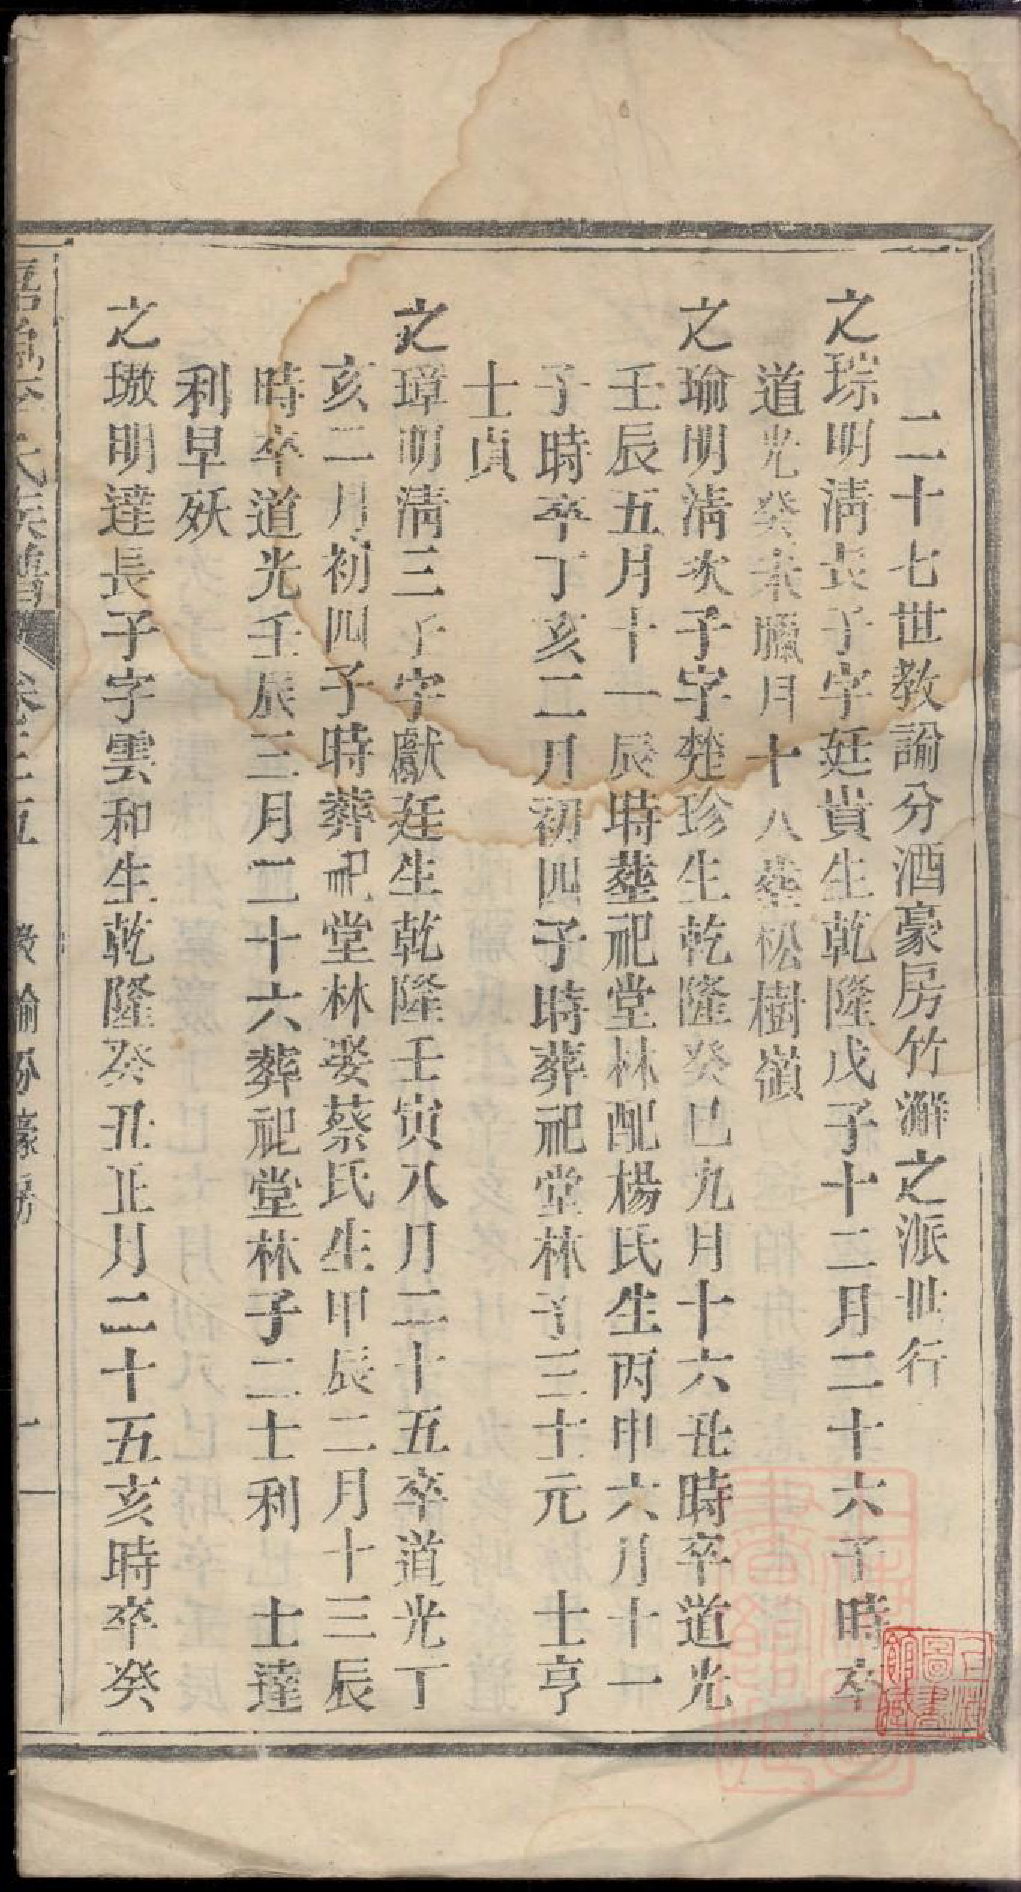 二十七世教諭分酒豪房竹澥之派世行
之琮明淸長子字廷貴生乾隆戊子十二月二十六子時卒
道光癸未臘月十八塟松樹嶺
之瑜明淸次子字楚珍生乾隆癸巳九月十六丑時卒道光
壬辰五月十一辰時塟祀堂林配楊氏生丙申六月十一
子時卒丁亥二月初四子時葬祀堂林子三士元 士亨
士貞
之璋明淸三子字獻廷生乾隆壬寅八月二十五卒道光丁
亥二月初四子時葬祀堂林娶蔡氏生甲辰二月十三辰
時卒道光壬辰三月二十六葬祀堂林子二士利 士達
利早殀
之璈明達長子字雲和生乾隆癸丑正月二十五亥時卒癸
氏族譜 卷三五 教諭 豪房 一